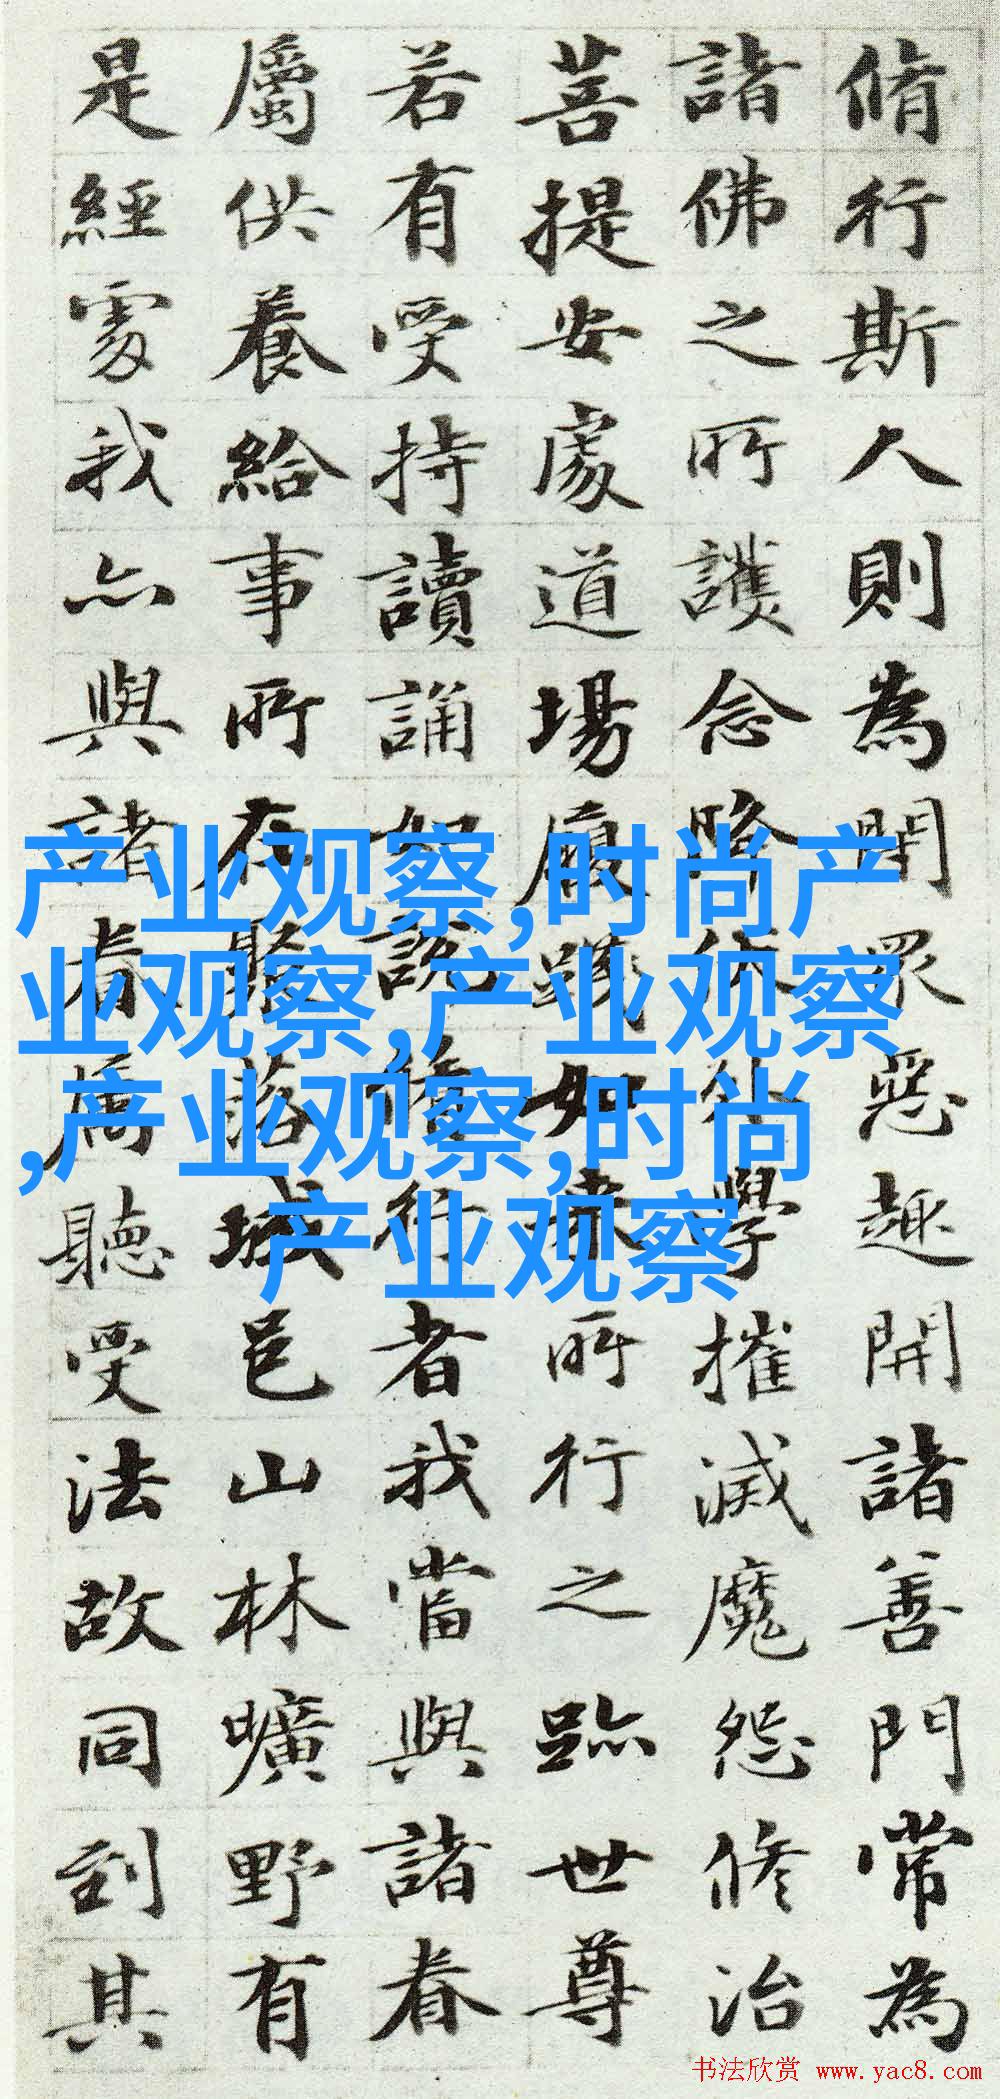 脩行斯人則為閇眾惡趣開諸善門常為
諸佛之所護念降伏外學摧滅魔怨修治
菩提安處道場履踐如來所行之跡世尊
若有受持讀誦如說修行者我當與諸眷
屬供養給事所在聚落城邑山林曠野有
是經處我亦與諸眷屬聽受法故同到其
产业观察,时尚产
业观察,产业观察
,产业观察,时尚
产业观察
书法欣赏 www.yac8.com